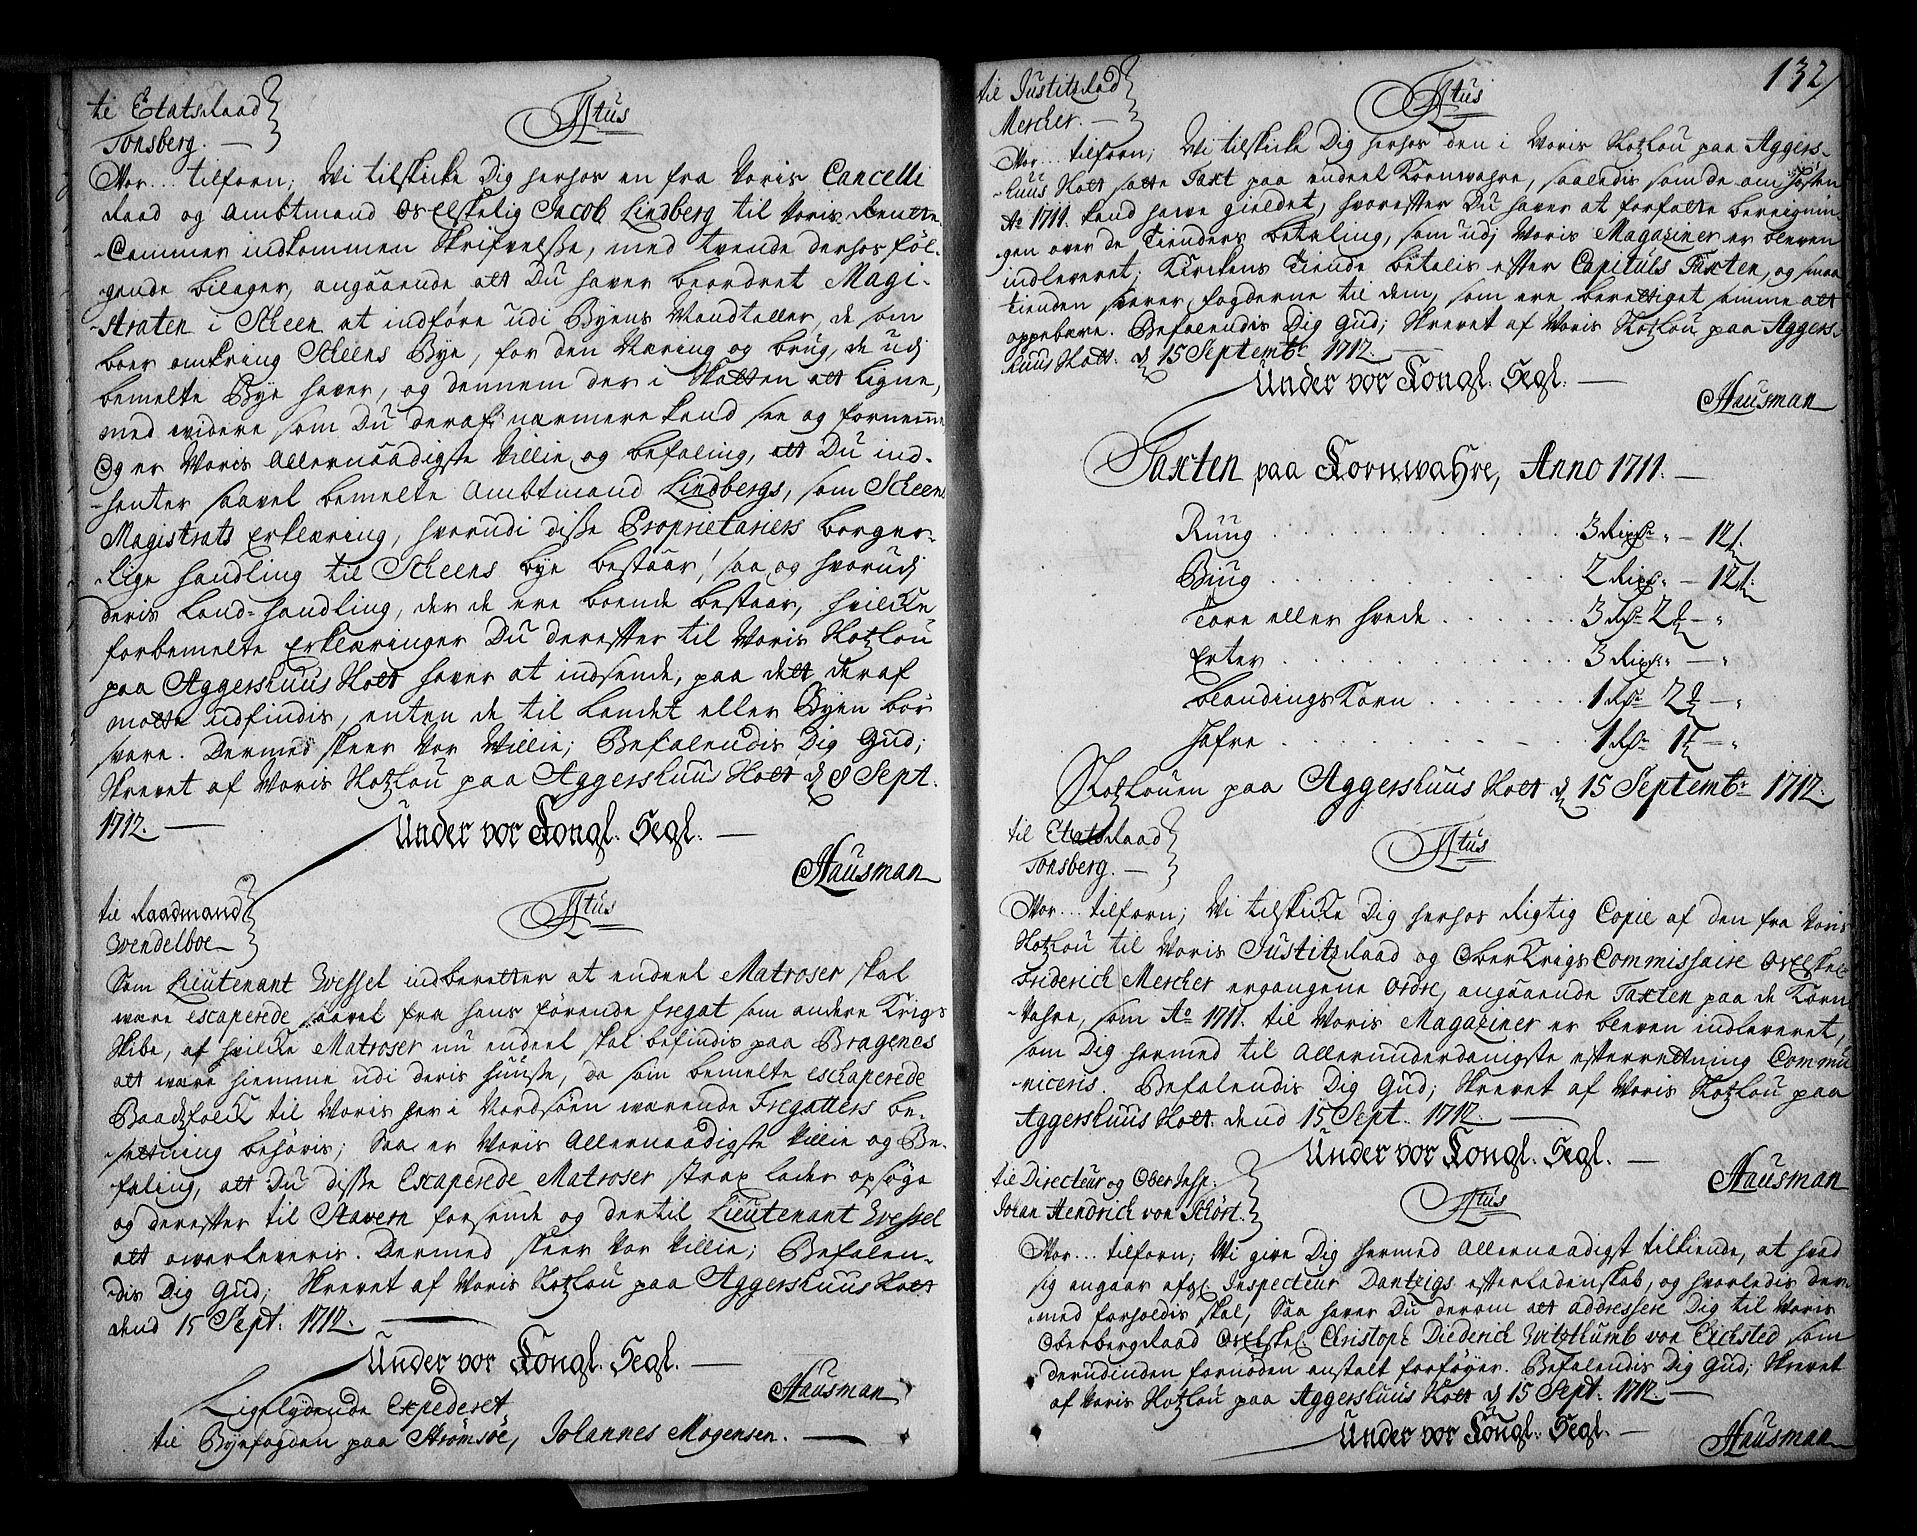 til EtatsRaad
Tonsberg. —
Fr: 4tus
Vor... tilforn; Vi tilskicke Dig herhos en fra Voris Cancelli
Raad og Ambtmand Os Elskelig Jacob Lindberg til Voris Rente-
-Cammer indkommen Skrifvelsse, med tvende derhos föl-
gende bilager, angaaende att Du haver beordret Magi-
-straten i Scheen at indföre udi Byens Mandtaller, de som
boer omkring Scheens Bye, for den Næring og brug, de udj
bemelte Bye haver, og dennem der i Skatten att ligne,
med widere som Du deraf nærmere kand see og fornemme
Og er Voris Allernaadigste Villie og befaling, att Du ind-
-henter saavel bemelte Ambtmand Lindbergs, som Scheens
Magistrats Erklæring, hvorudi disse Proprietariers borger-
-lige handling til Scheens bye bestaar, saa og hvorudj
deris Land-handling, der de ere boende bestaar, hvilcke
forbemelte Erklæringer Du derefter til Voris Slotzlou
paa Aggershuus Slott haver at indsende, paa dett deraf
motte udfindis, enten de til Landet eller Byen bör
svare. Dermed skeer Vor Villie; Befalendis Dig Gud;
Skrevet af Voris Slotzlou paa Aggershuus Slott d 8 Sept.
1712. —
Under vor Kongl. Segl. —
Hausman
til Raadmand
Wendelboe
4tus
Som Lieutenant Wessel indberetter at endeel Matroser skal
være escaperede saavel fra hans förende fregat som andre Krigs
Skibe, af hvilcke Matroser nu endeel skal befindis paa Bragenes
att være hiemme udi deris huusse, da som bemelte eschaperede
Baadtzfolck til Voris her i Nordsöen værende Fregatters be-
-settning behöris; Saa er Voris Allernaadigste Villie og Be-
faling, att Du disse Escaperede Matroser strax lader opsöge
og derefter til Stavern forsende og dertil Lieutenant Wessel
att overleveris. Dermed skeer Vor Villie; Befalen-
-dis Dig Gud; Skrevet af Voris Slotzlou paa Aggershuus Slott
dend 15 Sept. 1712. —
Under vor Kongl. Segl. —
Hausman
Liglydende Expederet
til Byefogden paa Strömsöe, Johannes Mogensen. —
132
til JustitzRaad
Mercher. —
4tus
Vor... tilforn; Vi tilskicke Dig herhos den i Voris Slotzlou paa Aggers-
-huus Slott satte Taxt paa endeel Kornwahre, saaledis som de om Hösten
Ao 1711. kand have gieldet, hvorefter Du haver at forfatte beregnin-
gen over de Tienders betaling, som udj Voris Magaziner er bleven
indleveret; Kirckens Tiende betalis efter Capituls Taxten, og smaa
tienden svarer fogderne til dem, som ere berettiget samme att
oppebære. Befalendis Dig Gud; Skrevet af Voris Slotzlou paa Aggers-
huus Slott. d 15 Septembr 1712. —
Under vor Kongl. Segl. —
Hausman
Taxten paa Kornwahre, Anno 1711. —
Ruug . . . 3 Rixdr „ — 12 s.
Biug . . . 2 Rixdr „ — 12 s.
Tore eller hvede . . . 3 Rdr 2 — „
Erter . . . 3 Rixdr — „
blandings Korn . . . 1 Rdr 2 — „
Hafre . . . 1 Rdr 1 — „
Slotzlouen paa Aggershuus Slott d 15 Septembr 1712.
til EtatsRaad
Tonsberg. —
4tus
Vor... tilforn; Vi tilskicke Dig herhos Rigtig Copie af den fra Voris
Slotzlou til Voris JustitzRaad og OberKrigsCommissaire Os Elskel:
Friderich Mercher ergangene Ordre, angaaende Taxten paa de Korn
Vahre, som Ao 1711. til Voris Magaziner er bleven indleveret,
som Dig hermed til Allerunderdanigste efterrettning Commu-
-niceris. Befalendis Dig Gud; Skrevet af Voris Slotzlou paa
Aggershuus Slott. dend 15 Sept. 1712. —
Under vor Kongl. Segl. —
Hausman
til Directeur og Ober Insp:
Johan Hendrich von Schört.
4tus
Vor... tilforn; Vi give Dig hermed Allernaadigst tilkiende, at hvad
sig angaar afgl Inspecteur Dantzigs efterladenskab, og hvorledis der
med forholdis skal, Saa haver Du derom att addressere Dig til Voris
OberbergRaad Os Elskel Christoph Diederich Witzthumb von Eichsted som
derudinden fornöden anstalt forföyer. Befalendis Dig Gud; Skrevet
af Voris Slotzlou paa Aggershuus Slott d 15 Sept. 1712. —
Under vor Kongl. Segl. —
Hausman